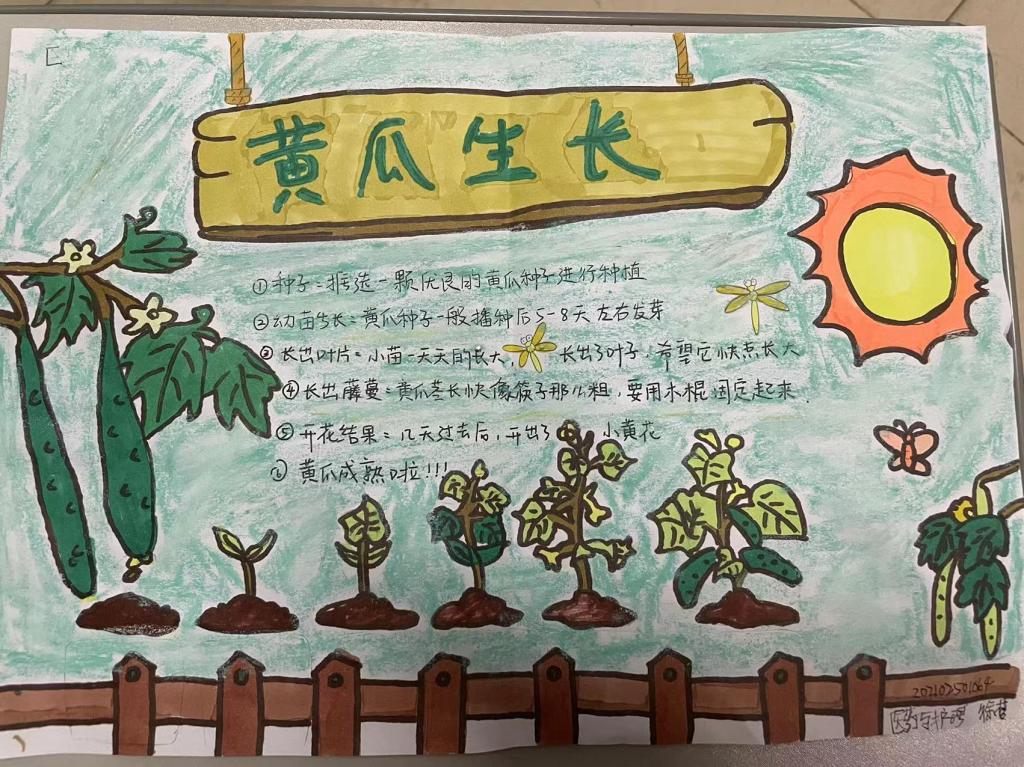 黄瓜生长
①种子:挑选一颗优良的黄瓜种子进行种植
②幼苗生长:黄瓜种子一般播种后5-8天左右发芽
③长出叶片:小苗一天天的长大,长出了叶子,希望它快点长大
④长出藤蔓:黄瓜茎长快像筷子那么粗,要用木棍固定起来.
⑤开花结果:几天过去后,开出了小黄花
①黄瓜成熟啦!!!
202102501064
医药与护理